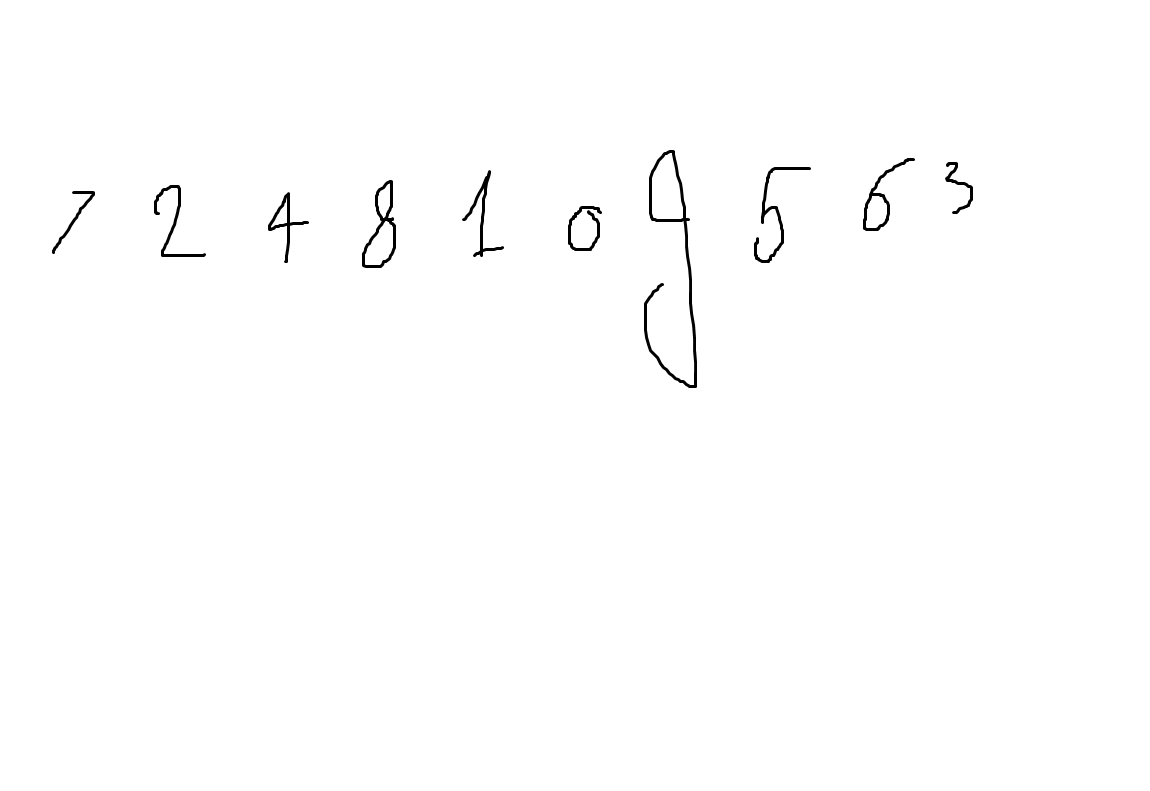 7 2 4 8 1 0 9 5 6 3